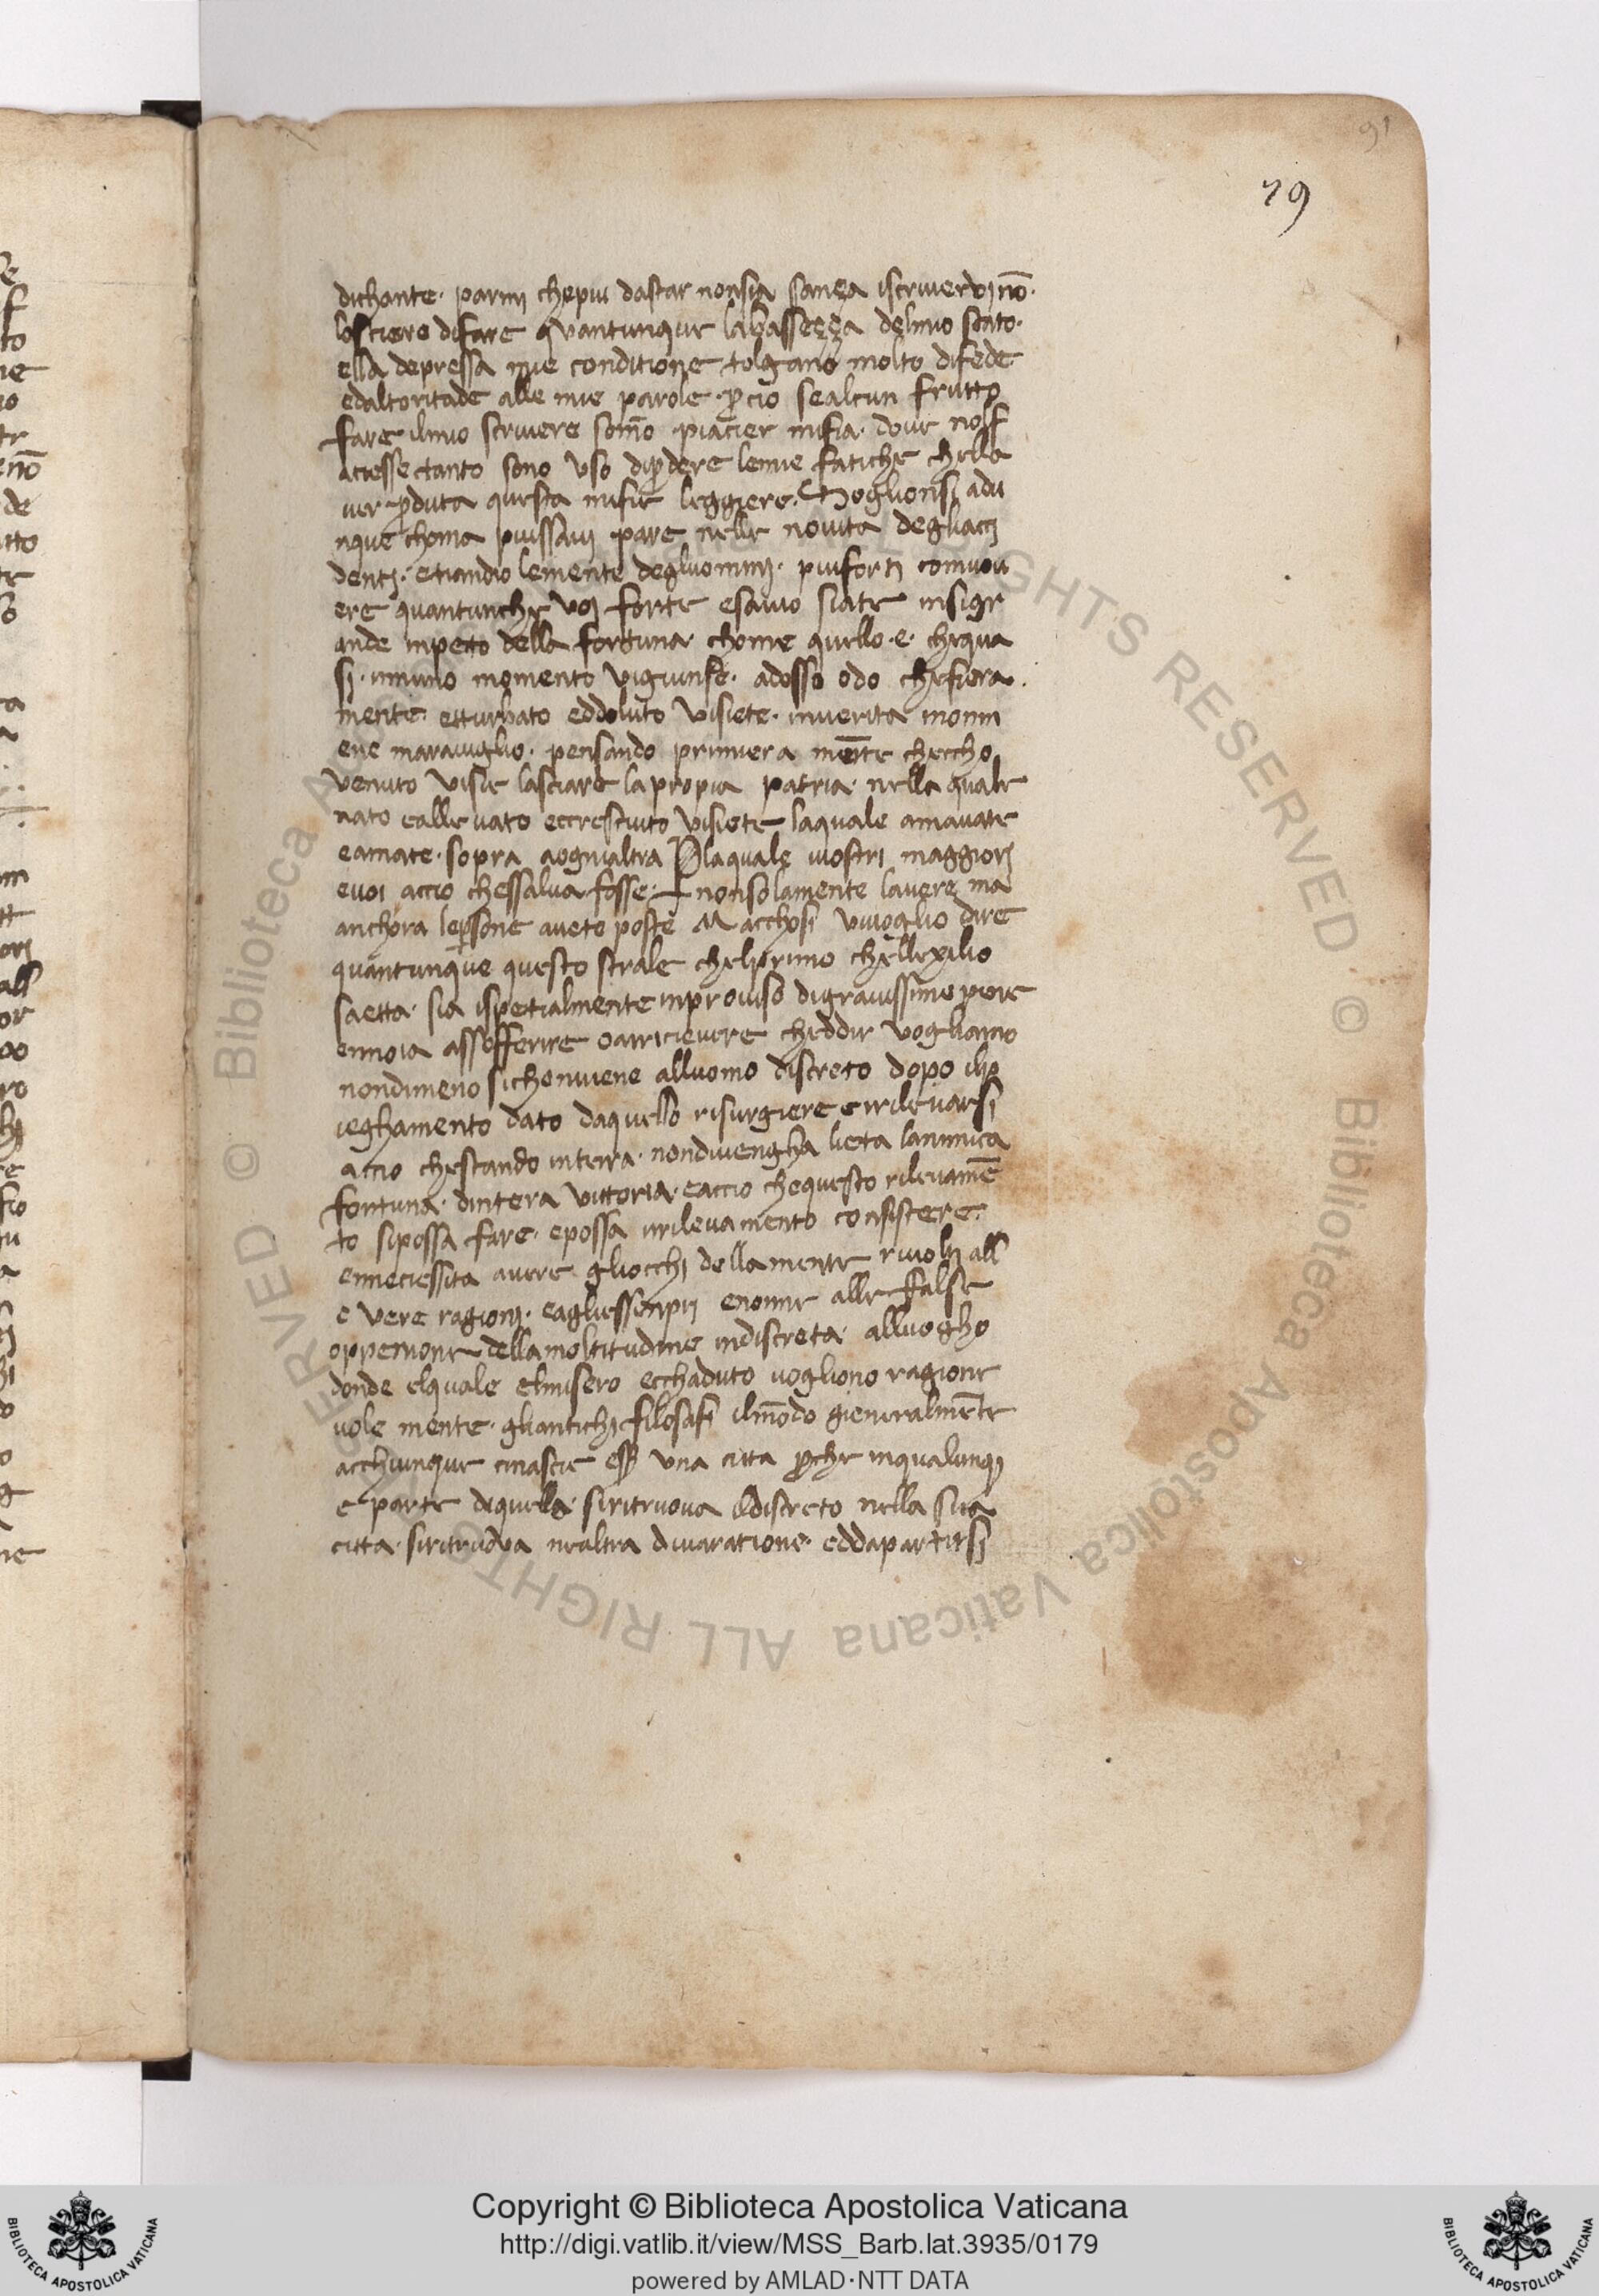 91
79
dichante · parmj chepiu dastar nonsia sança iscriuervj nō·
lo sciere difare quantunque labasseçça delmio stato·
ella depressa mie conditione tolgano molto difede
edaltoritade alle mie parole · pcio sealcun frutto
fare ilmio scriuere som̄o piacier mifia · doue nolf
aciesse tanto sono uso dipdere lemie fatiche chella
uer pduta questa mifie leggiere · Soglionsi adu
nque choma puissauj pare nelle nouita degliacj
dentj · etiandio lemente degluominj · piuforti comuou
ere quantunche voj forte esauio siate insigr
ande inpeto della fortuna chome quello · e · chequa
sj · inuno momento vigiunse · adosso odo chefiera ·
mente etturbato eddoluto visiete · inuerita nonm
ene marauiglio · pensando primiera mēte checcho
venuto visie lasciare lapropia patria · nella quale
nato ealleuato eccresciuto visiete laquale amauate
eamate · sopra aognialtra Plaquale uostri maggiorj
euoi accio chessalua fosse · nonsolamente lauere ma
anchora lepersone aueto poste Macchosi viuoglio dire
quantunque questo strale chelprimo chellexilio
saetta · sia ispetialmente inprouiso digrauissimo pore
ennoia assofferire oarricieuere cheddir vogliamo
nondimeno sichonuiene alluomo discreto dopo ilp
ieghamento dato daquello risurgiere e rrileuarsi
accio chestando interra · nondiuengha lieta lanimica
fortuna · dintera vittoria · eaccio chequesto rileuamē
to sipossa fare · epossa irrileuamento consistere ·
enneciessita auere gliocchj dellamente riuoltj all
e vere ragionj · eagliessenpri enonne alle false
oppenione dellamoltitudine indiscreta · alluogho
donde elquale elmisero ecchaduto uogliono ragione
uole mente · gliantichj filosafi ilmōdo gieneralmēte
acchiunque cinascie esser una citta pche inqualunqj
e parte diquella · siritruoua ildiscreto nella sua
citta · siritruova nealtra diuaratione · eddapartirsj
Copyright © Biblioteca Apostolica Vaticana
http://digi.vatlib.it/view/MSS_Barb.lat.3935/0179
powered by AMLAD·NTT DATA
BIBLIOTECA APOSTOLICA VATICANA
BIBLIOTECA APOSTOLICA VATICANA